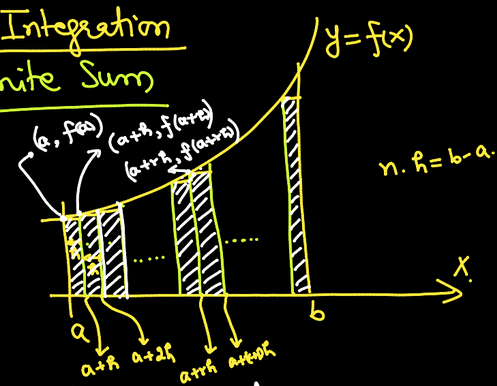 Integration
nite Sum
y = f(x)
(a, f(a))
(a+h, f(a+h))
(a+rh, f(a+rh))
n. h = b - a.
h
h
X.
a
b
a+h
a+2h
a+rh
a+(r+1)h